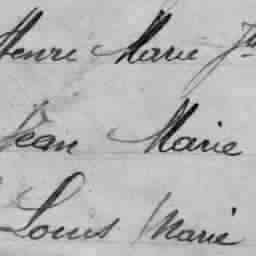 Henri Marie
Jean Marie
Louis Marie